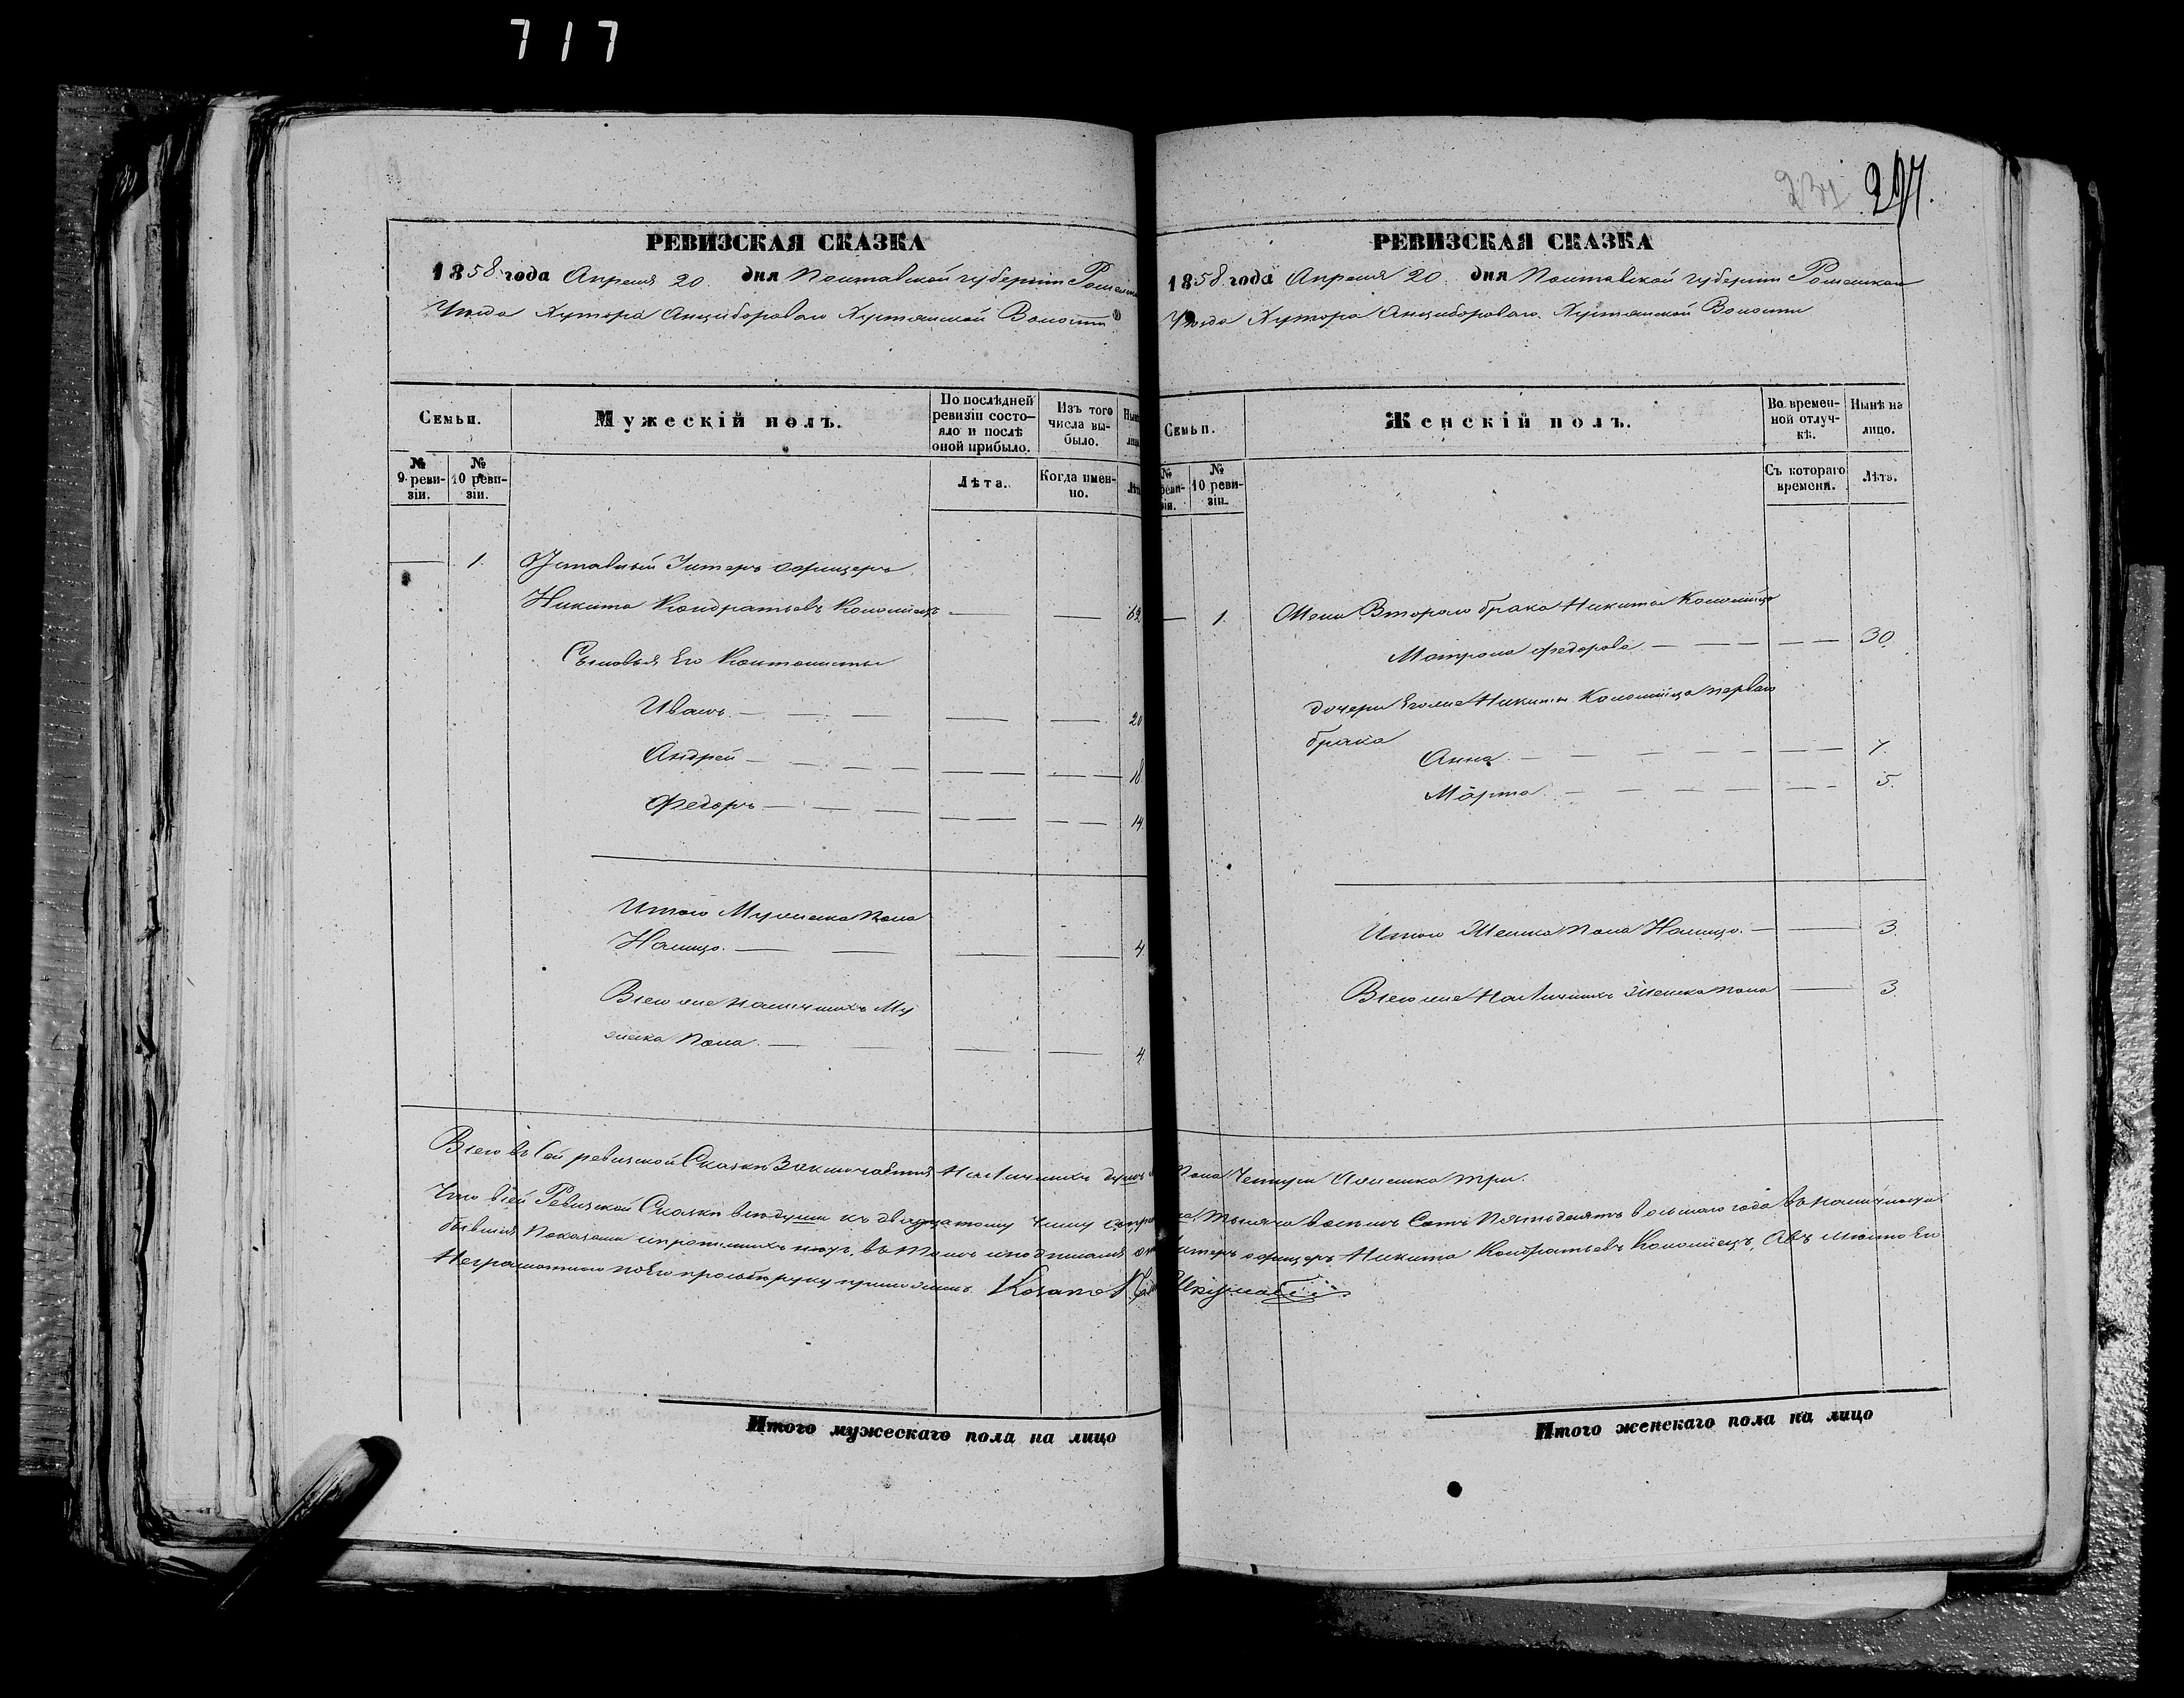 717
РЕВИЗСКАЯ СКАЗКА
1858 года Апреля 20. дня Полтавской губернии
Уезда Хутора Анцибороваго Хустянской Волости
Семьи.
Мужескій полъ.
По послѣдней ревизіи состо-яло и послѣ оной прибыло.
Изъ того числа вы-было.
№ 9 реви-зіи.
№ 10 реви-зіи.
Лѣта.
Когда имен-но.
1. Отставный Унтеръ офицеръ
Никита Кондратьевъ Коломіецъ — — 62
Сыновья Его Кантонисты
Иванъ — — — 20
Андрей — — — 18
Федоръ — — — 14
Итого Мужеска Пола
Налицо. — — 4
Всего же наличныхъ Му
жеска Пола. — — 4
297.
231
РЕВИЗСКАЯ СКАЗКА
1858 года Апреля 20. дня Полтавской губернии Роменскаго
Уезда Хутора Анцибороваго Хустянской Волости
Семьи.
Женскій полъ.
Во времен-ной отлуч-кѣ.
Нынѣ на лицо.
№ 10 реви-зіи.
Съ котораго времени.
Лѣта.
— 1. Жена Втораго брака Никиты Коломійца
Матрона Федорова — — — 30.
дочери Его же Никиты Коломійца перваго
брака
Анна — — — 7.
Марта — — — 5.
Итого Женска Пола Налицо. — 3.
Всего же Наличныхъ Женска пола — 3.
Всего въ Сей ревизской Сказки Заключается Наличныхъ душъ Пола Четыри Женска три.
Что всей Ревизской Сказки все души къ двадцатому числу тысяча восемь Сотъ Пятьдесятъ восьмаго года въ наличности
бывшия Показаны въ томъ подписался Унтеръ офицеръ Никита Кондратьевъ Коломіецъ, Авъ место Его
Неграмотнаго по Его прозьбе руку приложилъ Козакъ
Итого мужескаго пола на лицо
Итого женскаго пола на лицо